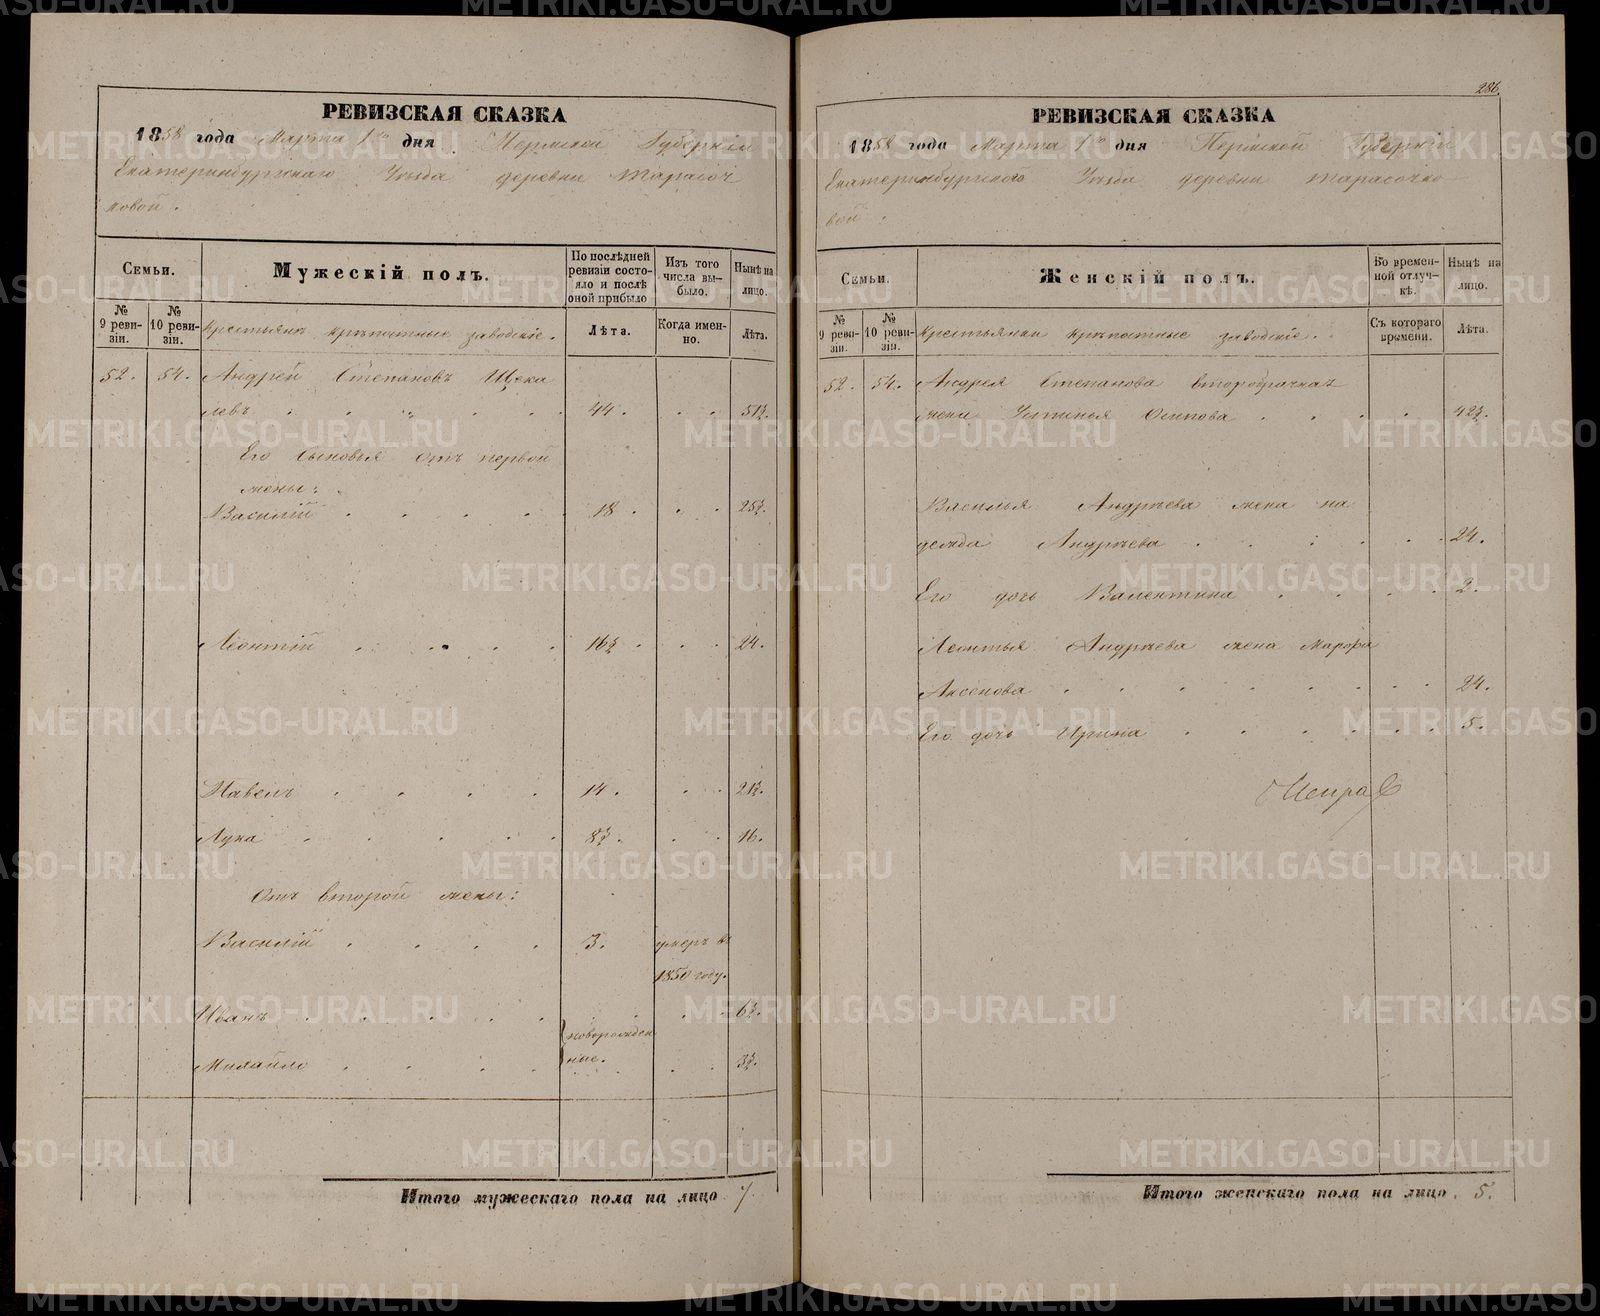 РЕВИЗСКАЯ СКАЗКА
1858 года Марта 1го дня Пермской Губернiи
Екатеринбургскаго Уѣзда деревни Тарасоч
ковой.
Семьи.
Мужескiй полъ.
По послѣдней ревизiи состояло и послѣ оной прибыло
Изъ того числа выбыло.
Нынѣ на лицо.
№ 9 ревизiи.
№ 10 ревизiи.
Крестьяне крѣпостные заводскiе.
Лѣта.
Когда именно.
Лѣта.
52. 54. Андрей Степановъ Щека
левъ 44. 51½.
Его сыновья отъ первой
жены:
Василiй 18. 25½.
Леонтiй 16½. 24.
Павелъ 14. 21½.
Лука 8½. 16.
Отъ второй жены:
Василiй 3. умеръ въ
1850 году.
Иванъ 6½.
новорожден
ные.
Михайло 3½.
Итого мужескаго пола на лицо 7.
286.
РЕВИЗСКАЯ СКАЗКА
1858 года Марта 1го дня Пермской Губернiи
Екатеринбургскаго Уѣзда деревни Тарасочко
вой.
Семьи.
Женскiй полъ.
Во временной отлучкѣ.
Нынѣ на лицо.
№ 9 ревизiи.
№ 10 ревизiи.
Крестьянки крѣпостные заводскiе.
Съ котораго времени.
Лѣта.
52. 54. Андрея Степанова второбрачная
жена Устинья Осипова 42½.
Василья Андрѣева жена На
дежда Андрѣева 24.
Его дочь Валентина 2.
Леонтья Андрѣева жена Марфа
Аксенова 24.
Его дочь Ирина 5.
Итого женскаго пола на лицо. 5.
METRIKI.GASO-URAL.RU